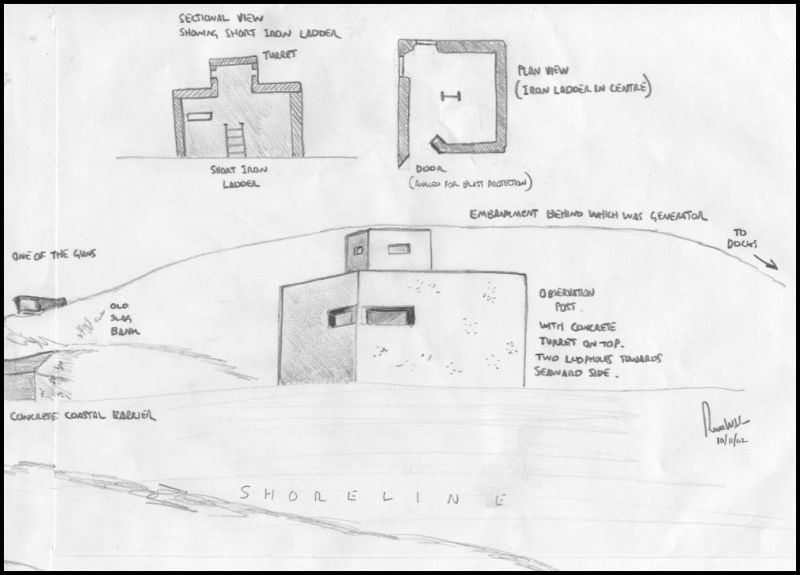 SECTIONAL VIEW
SHOWING SHORT IRON LADDER
TURRET
SHORT IRON
LADDER
PLAN VIEW
(IRON LADDER IN CENTRE)
DOOR
(ANGLED FOR BLAST PROTECTION)
EMBANKMENT BEHIND WHICH WAS GENERATOR
TO
DOCKS
ONE OF THE GUNS
OLD
SLAG
BANK
OBSERVATION
POST.
WITH CONCRETE
TURRET ON TOP.
TWO LOOPHOLES TOWARDS
SEAWARD SIDE.
CONCRETE COASTAL BARRIER
10/11/02
SHORELINE